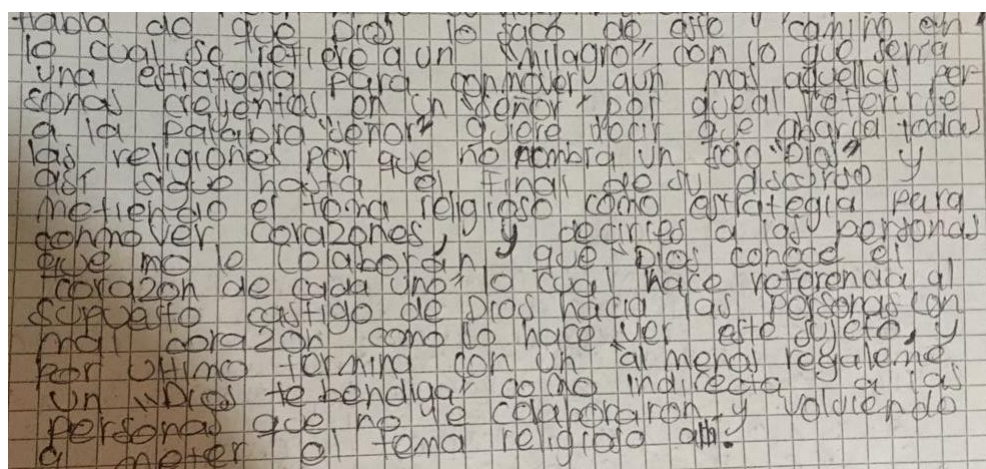 Habla de que Dios lo saco de este "camino en
lo cual se refiere a un "Milagro" con lo que seria
una estrategia para conmover aun mas aquellas per
sonas creyentes en un señor" por que al referirse
a la palabra "señor" quiere decir que abarca todas
las religiones por que no nombra un solo "Dios" y
asi sigue hasta el final de su discurso y
metiendo el tema religioso como estrategia para
conmover corazones, y decirles a las personas
que no le colaboran y que "Dios conoce el
corazon de cada uno" lo cual hace referencia al
supuesto castigo de Dios hacia las personas con
mal corazon como lo hace ver este sujeto, y
por ultimo termina con un "al menos regaleme
un "Dios te bendiga" como indirecta a las
personas que no le colaboraron y volviendo
a meter el tema religioso ahi.